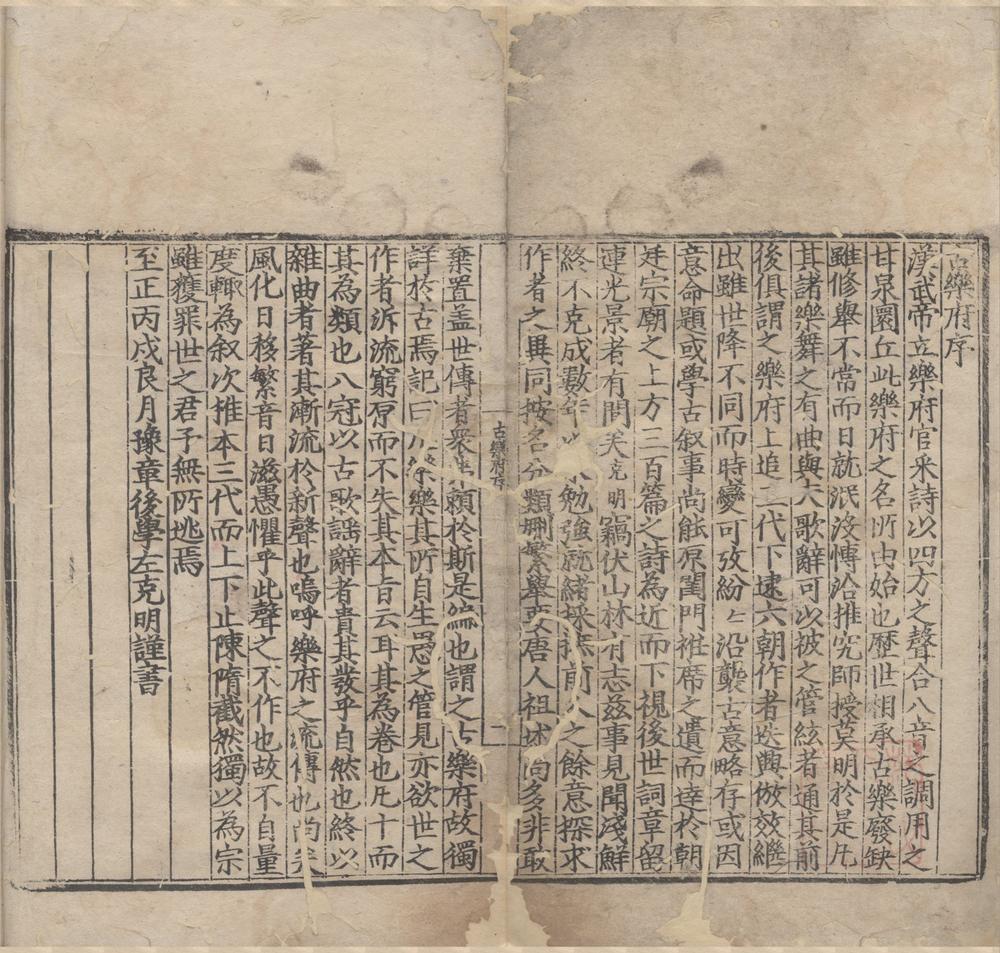 古樂府序
漢武帝立樂府官采詩以四方之聲合八音之調用之
甘泉圜丘此樂府之名所由始也歷世相承古樂廢缺
雖修舉不常而日就泯沒愽洽推究師授莫明於是凡
其諸樂舞之有曲與夫歌辭可以被之管絃者通其前
後俱謂之樂府上追三代下逮六朝作者迭興倣效繼
出雖世降不同而時變可攷紛々沿襲古意略存或因
意命題或學古叙事尚能原閨門袵席之遺而達於朝
廷宗廟之上方三百篇之詩為近而下視後世詞章留
連光景者有間矣克明竊伏山林有志兹事見聞淺鮮
終不克成數年以來勉強就緒採摭前人之餘意探求
作者之異同按名分類刪繁舉要唐人祖述尚多非敢
古樂府序
二
棄置盖世傳者衆無頼於斯是編也謂之古樂府故獨
詳於古焉記曰凢樂樂其所自生愚之管見亦欲世之
作者泝流窮原而不失其本旨云耳其為卷也凡十而
其為類也八冠以古歌謡辭者貴其發乎自然也終以
雜曲者著其漸流於新聲也嗚呼樂府之流傳也尚矣
風化日移繁音日滋愚懼乎此聲之不作也故不自量
度輙為叙次推本三代而上下止陳隋截然獨以為宗
雖獲罪世之君子無所逃焉
至正丙戌良月豫章後學左克明謹書